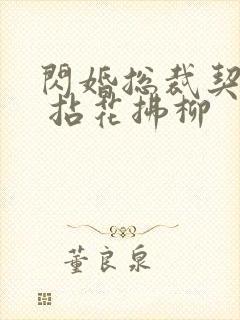 閃婚总裁契
拈花拂柳
董良泉